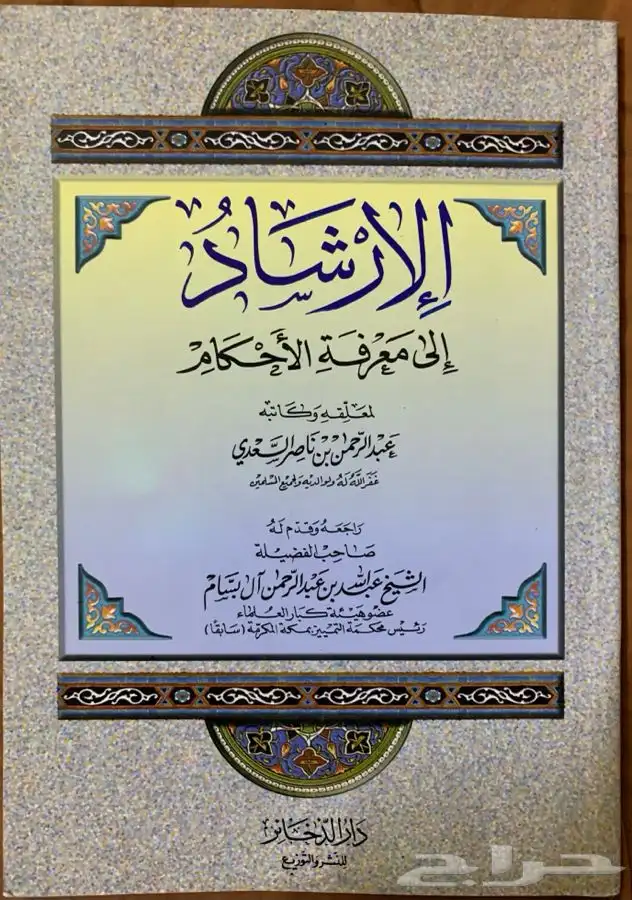 الإِرْشَادُ
إِلىٰ مَعْرِفَةِ الأَحْكَامِ
لمعَلِّقِهِ وَكَاتبه
عَبْدُ الرَّحْمٰن بْن نَاصِر السَّعْدِي
غَفَرَ اللّٰهُ لَهُ وَلِوالدَيهِ وَلجَمِيع المُسْلمين
رَاجَعَهُ وَقَدّمَ لَهُ
صَاحِبُ الفَضِيلَة
الشَيْخ عَبْداللّٰه بن عَبْدالرَّحْمٰن آل بَسَّام
عضو هَيئة كبَار العُلمَاء
رَئيس محكمَة التمييز بمكة المكرمَة (سَابقًا)
دَارُ الذَّخَائِر
للنَّشْر وَالتَّوزيع
حراج